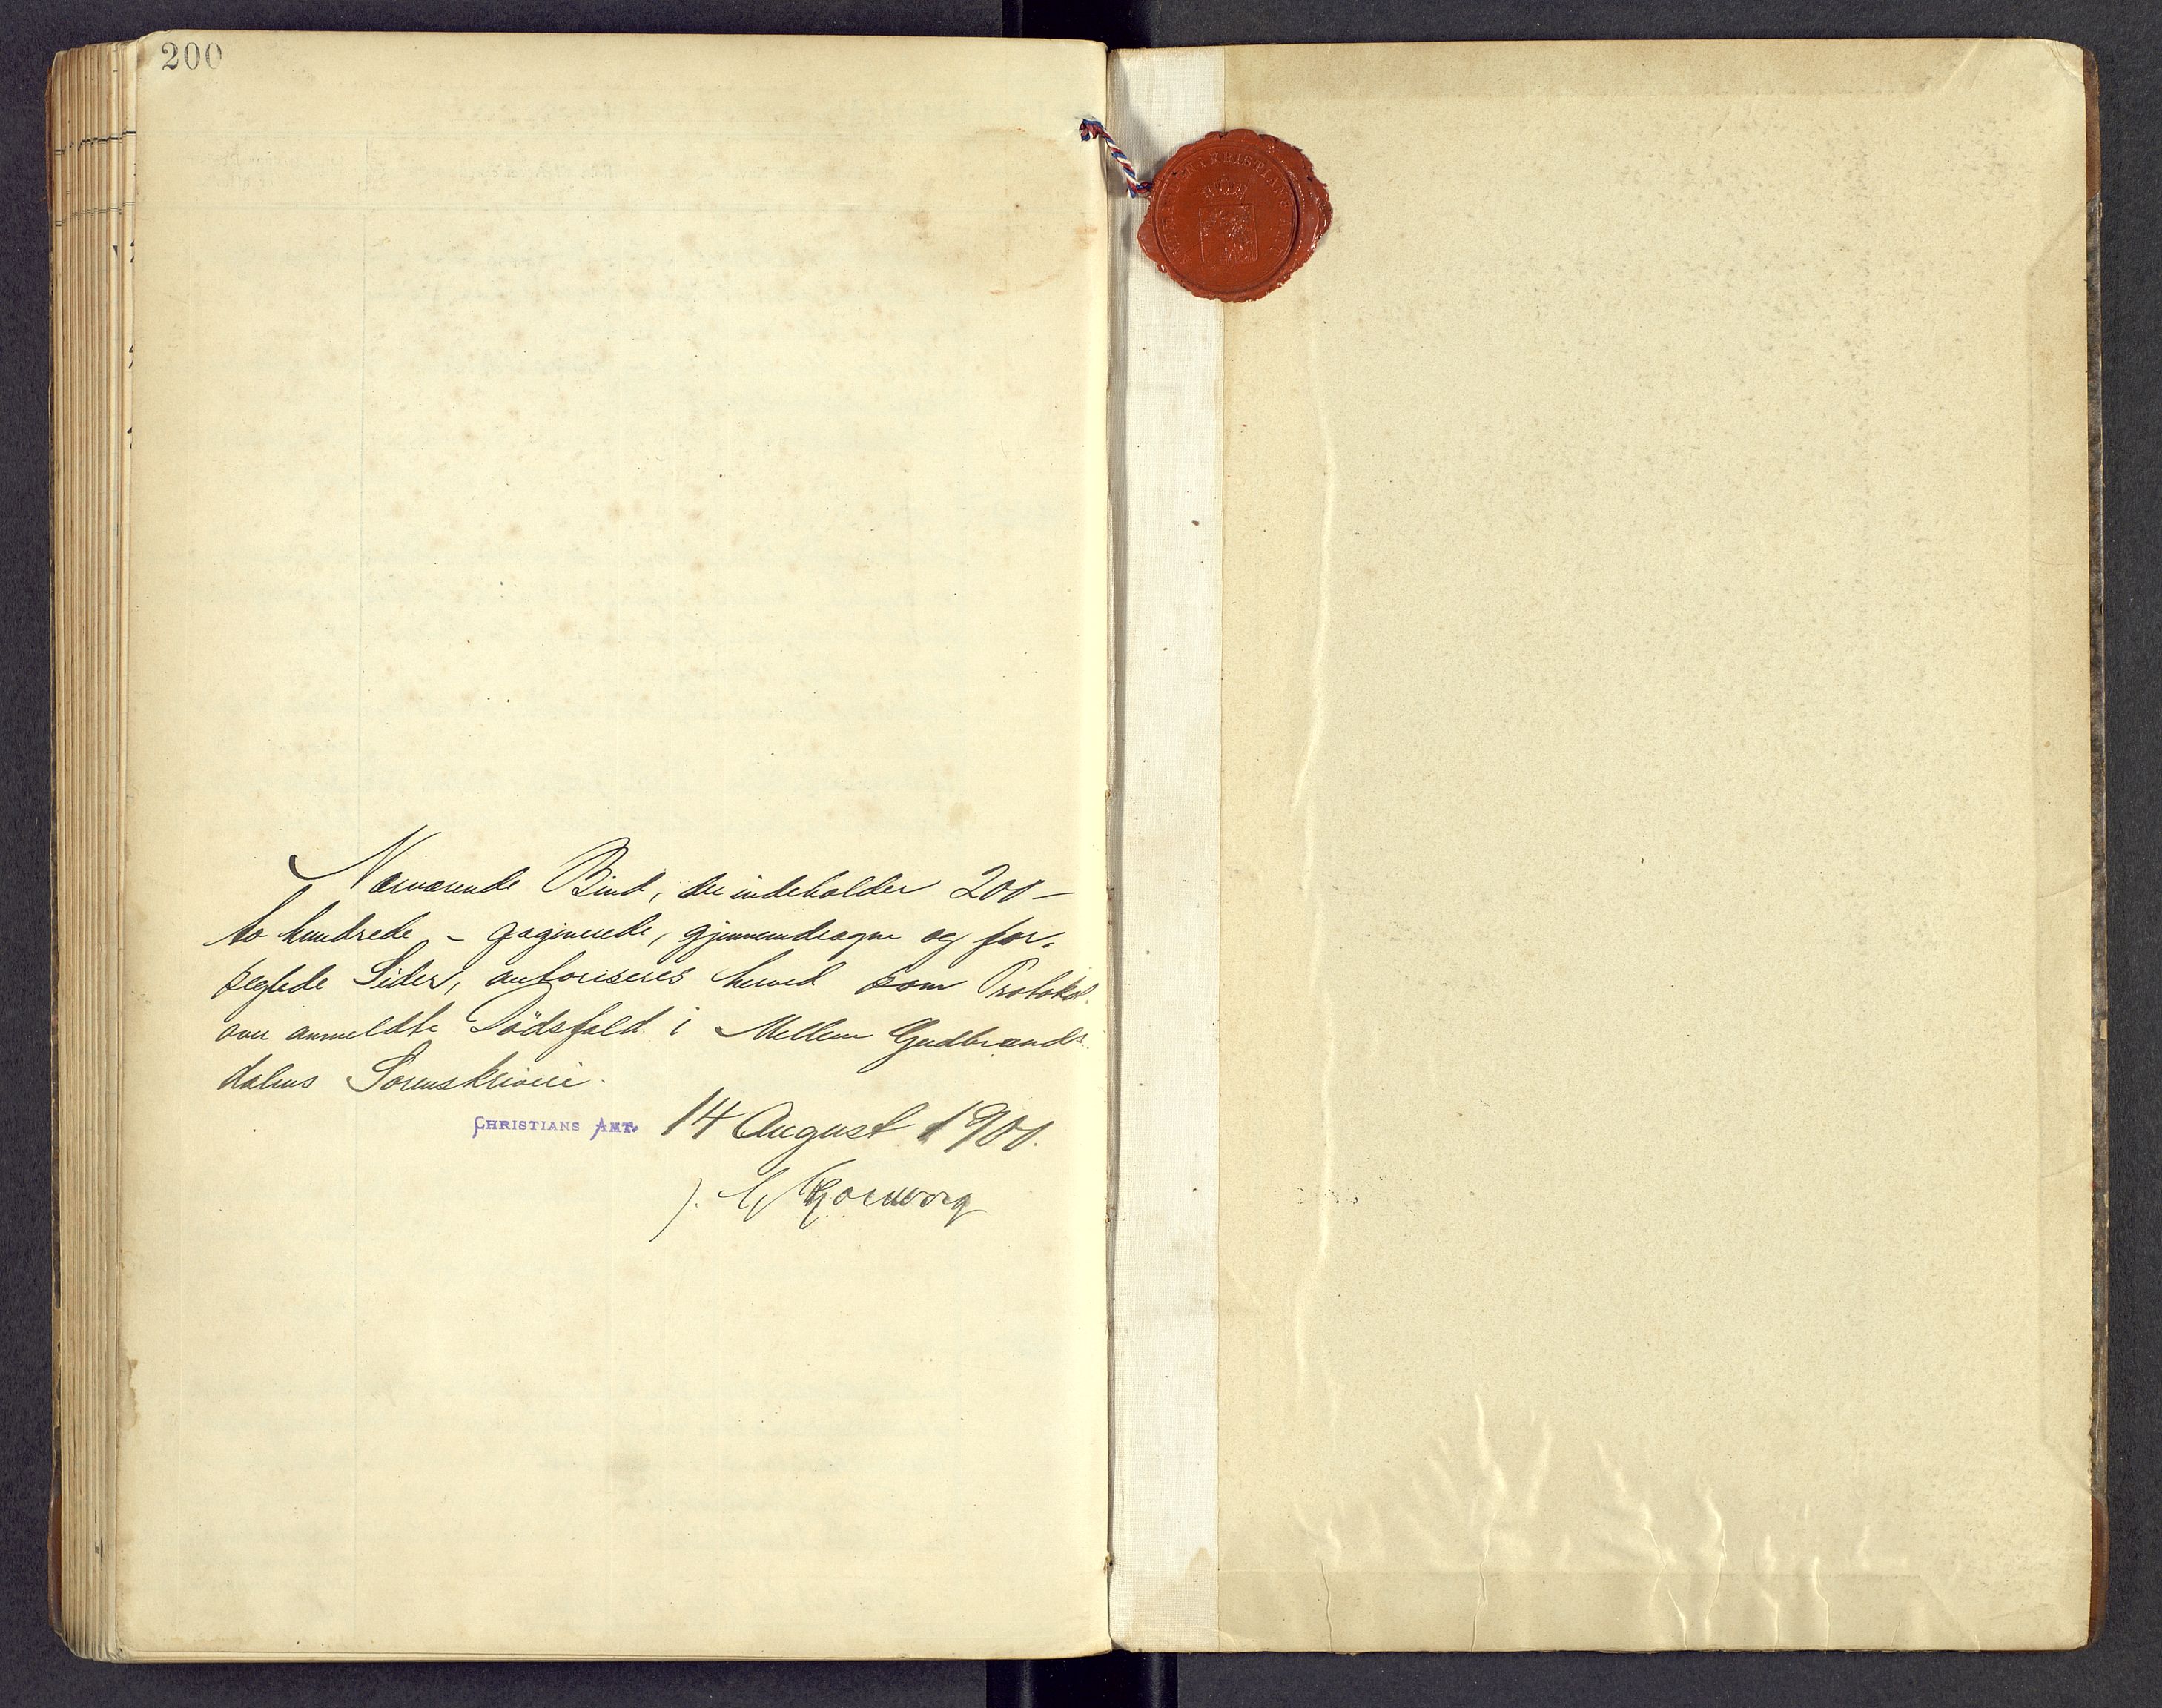 200
Nærværende Bind, der indeholder 200 –
to hundrede – paginerede, gjennemdragne og for-
seglede Sider, autoriseres herved som Protokol
over anmeldte Dödsfald i Mellem Gudbrands-
dalens Sorenskriveri.
CHRISTIANS AMT. 14 August 1900.